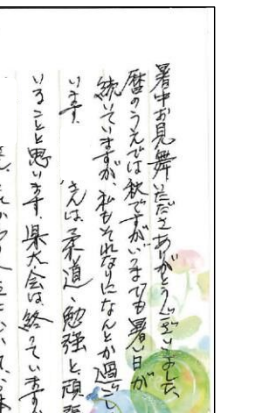 暑中お見舞いただきありがとうございました、
暦のうえでは秋ですがいつまでも暑い日が
続いていますが私もそれなりになんとか過ごし
います。 さんは、柔道、勉強と頑張
いることと思います。県大会は、終っていますか